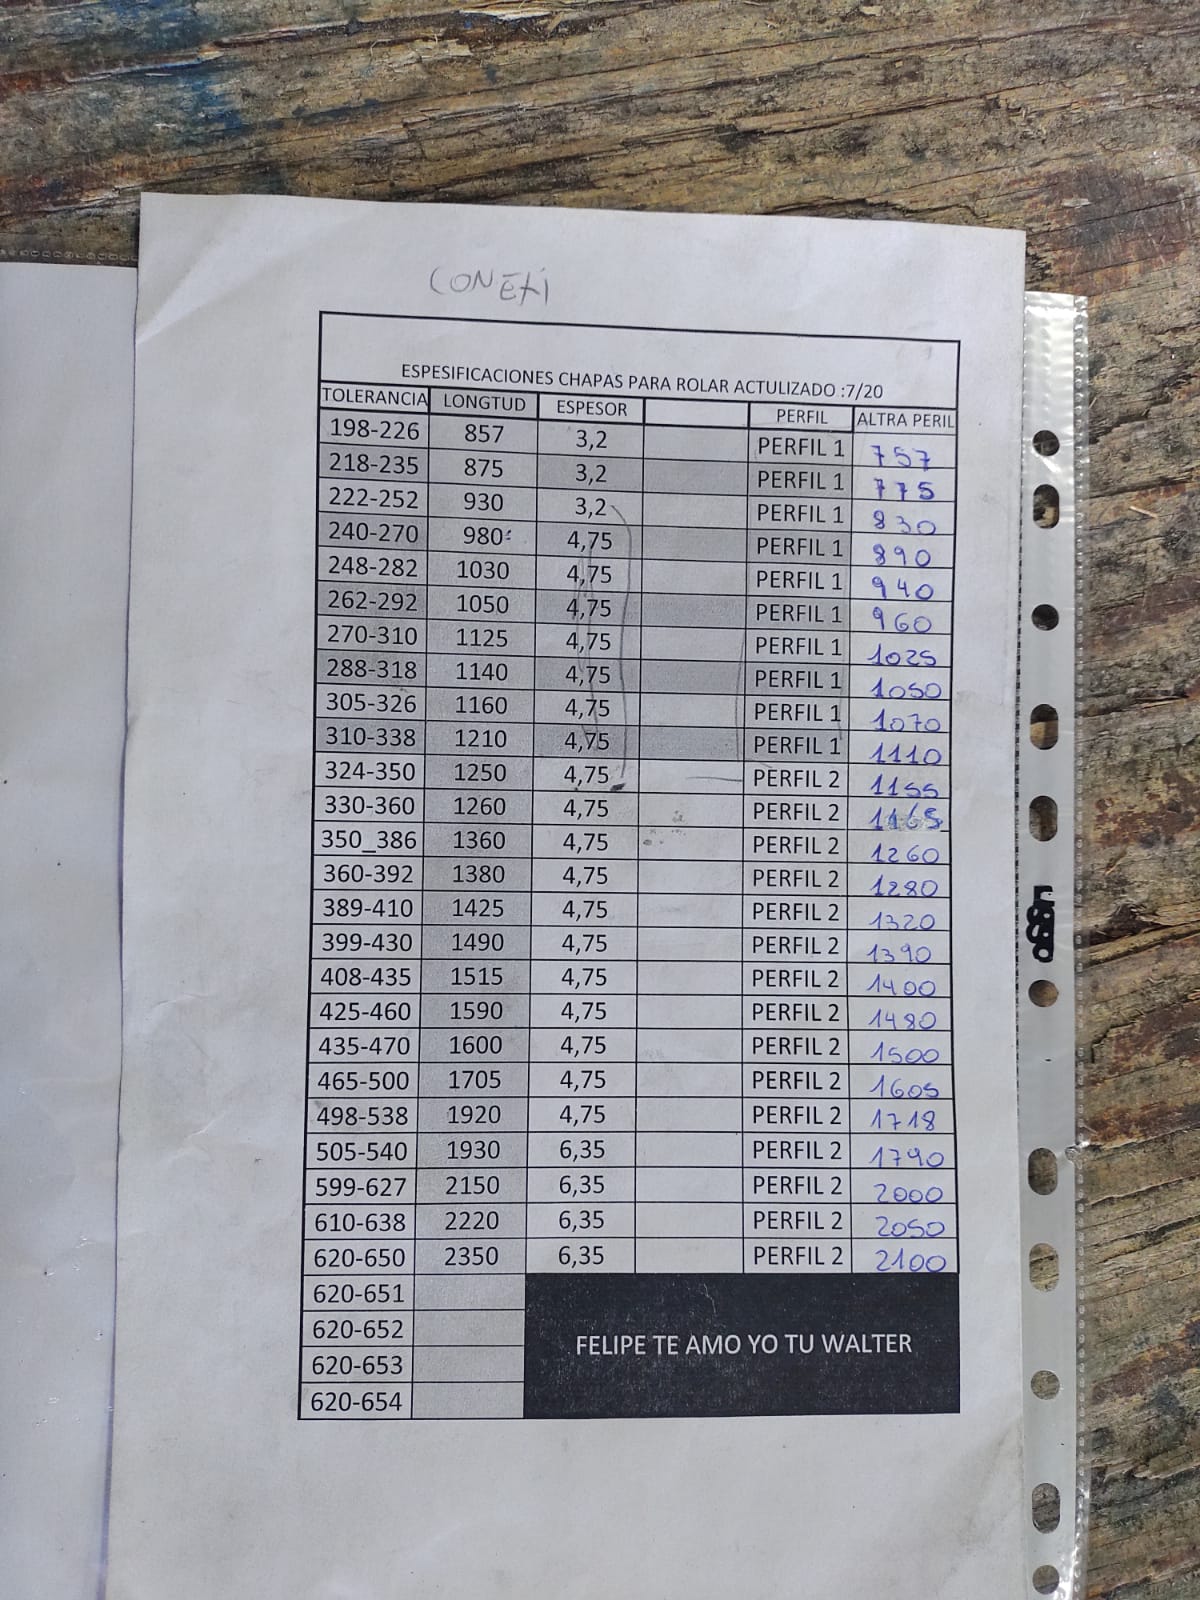 CONEXI
ESPESIFICACIONES CHAPAS PARA ROLAR ACTULIZADO :7/20
TOLERANCIA LONGTUD ESPESOR PERFIL ALTRA PERIL
198-226 857 3,2 PERFIL 1 757
218-235 875 3,2 PERFIL 1 775
222-252 930 3,2 PERFIL 1 830
240-270 980 4,75 PERFIL 1 890
248-282 1030 4,75 PERFIL 1 940
262-292 1050 4,75 PERFIL 1 960
270-310 1125 4,75 PERFIL 1 1025
288-318 1140 4,75 PERFIL 1 1050
305-326 1160 4,75 PERFIL 1 1070
310-338 1210 4,75 PERFIL 1 1110
324-350 1250 4,75 PERFIL 2 1155
330-360 1260 4,75 PERFIL 2 1165
350_386 1360 4,75 PERFIL 2 1260
360-392 1380 4,75 PERFIL 2 1280
389-410 1425 4,75 PERFIL 2 1320
399-430 1490 4,75 PERFIL 2 1390
408-435 1515 4,75 PERFIL 2 1400
425-460 1590 4,75 PERFIL 2 1480
435-470 1600 4,75 PERFIL 2 1500
465-500 1705 4,75 PERFIL 2 1605
498-538 1920 4,75 PERFIL 2 1718
505-540 1930 6,35 PERFIL 2 1790
599-627 2150 6,35 PERFIL 2 2000
610-638 2220 6,35 PERFIL 2 2050
620-650 2350 6,35 PERFIL 2 2100
620-651
620-652
FELIPE TE AMO YO TU WALTER
620-653
620-654